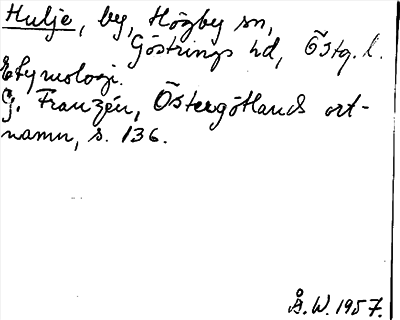 Hulje, by, Högby sn,
Göstrings hd, Östg. l.
Etymologi.
G. Franzén, Östergötlands ort-
namn, s. 136.
Å. W. 1957.